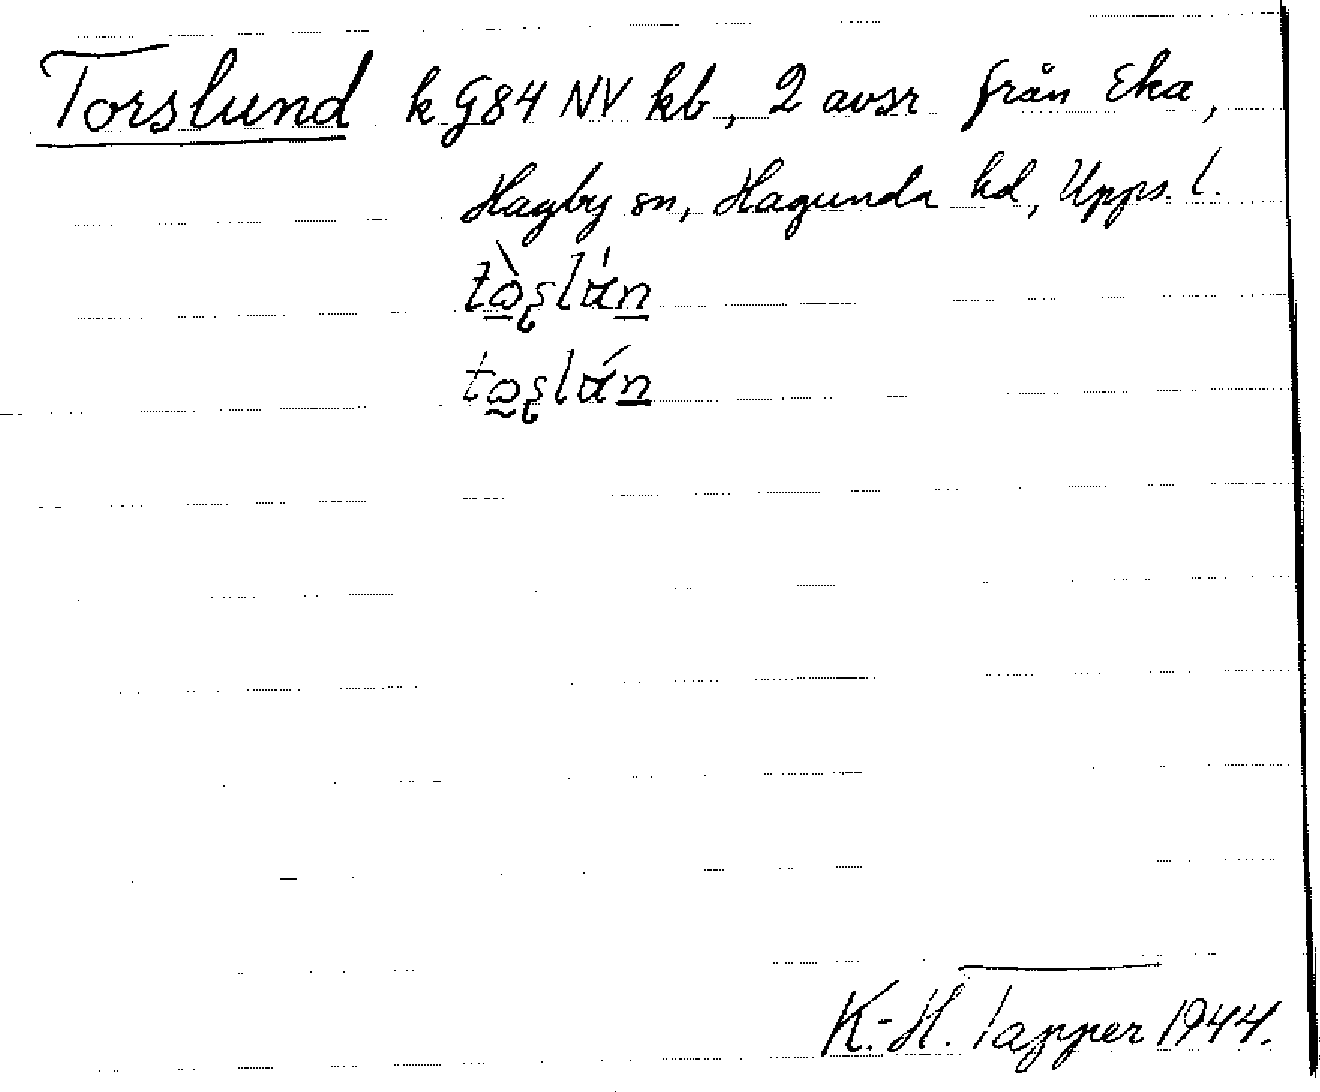 Torslund k G84 NV kb, 2 avsr från Eka,
Hagby sn, Hagunda hd, Upps. l.
K.-H. Tapper 1944.